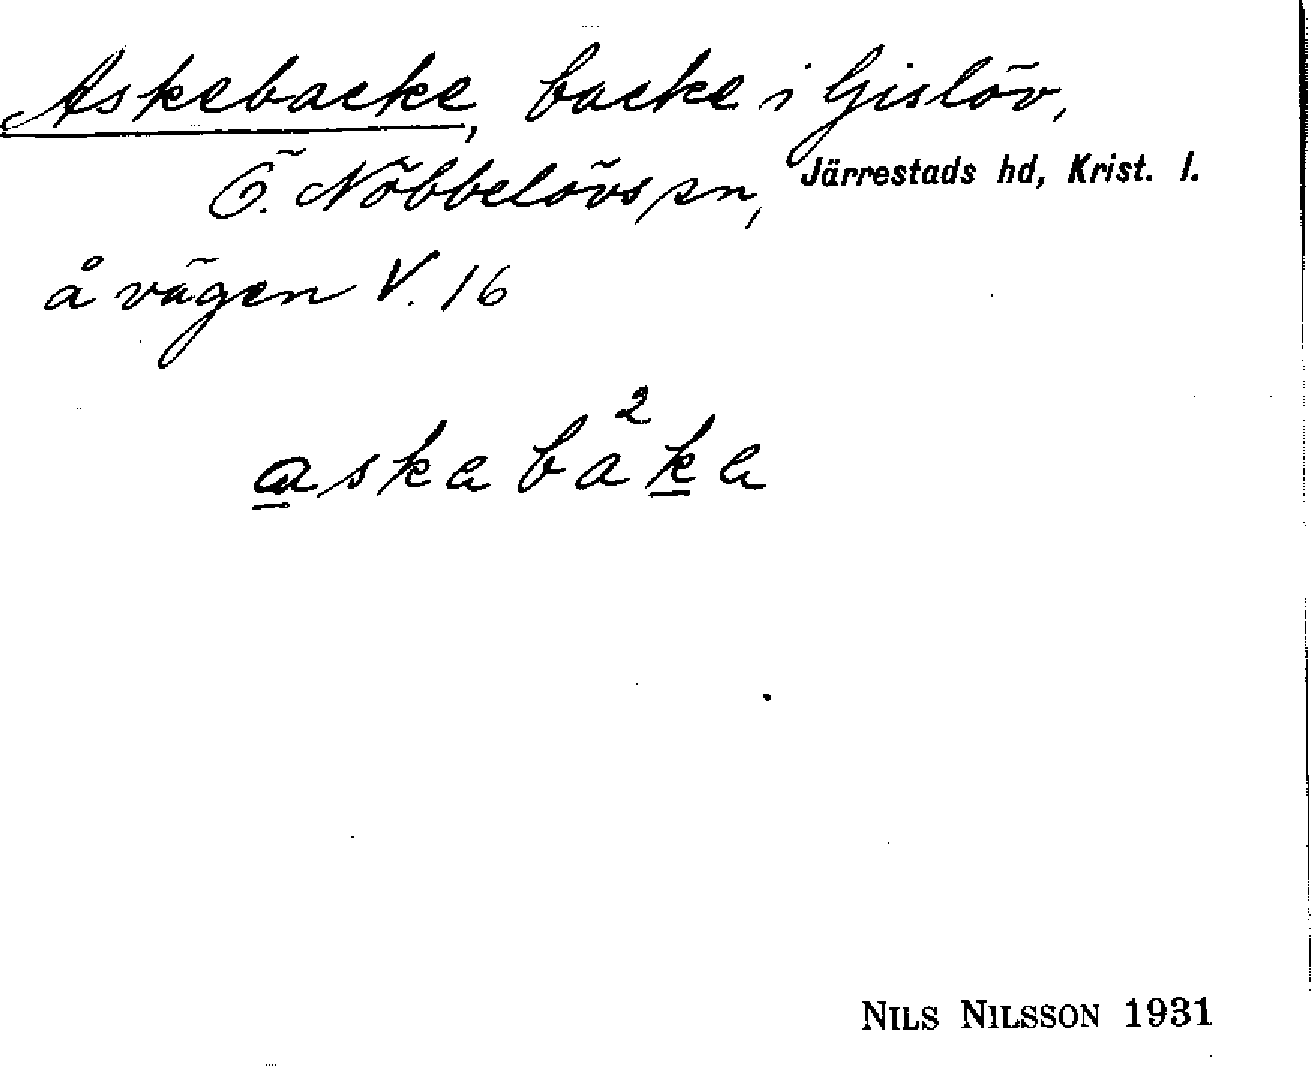 Askebacke, backe i Gislöv,
Ö. Nöbbelövs sn, Järrestads hd, Krist. l.
å vägen V. 16
askaba²ka
NILS NILSSON 1931